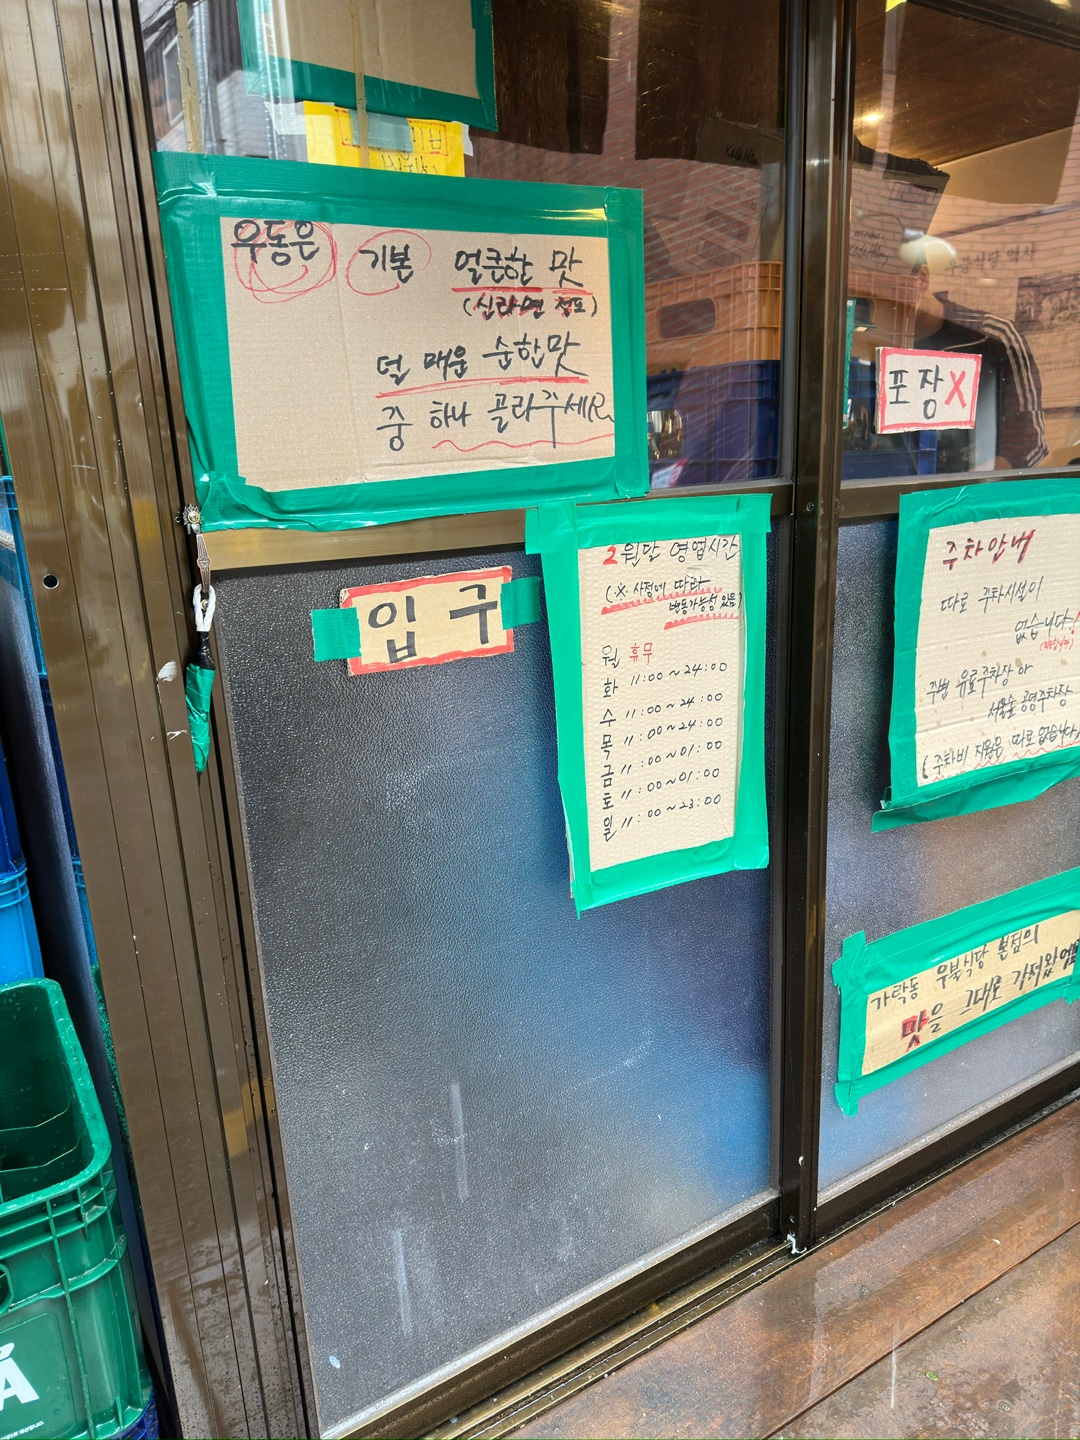 우동은 기본 얼큰한 맛
(신라면 정도)
덜 매운 순한맛
중 하나 골라주세R
포장X
입구
2월달 영업시간
(※사정에 따라
변동가능성 있음)
월 휴무
화 11:00~24:00
수 11:00~24:00
목 11:00~24:00
금 11:00~01:00
토 11:00~01:00
일 11:00~23:00
주차안내
따로 주차시설이
없습니다!
주변 유료주차장 or
서울숲 공영주차장
(주차비 지원은 따로 없습니다
가락동 우불식당 본점의
맛을 그대로 가져왔